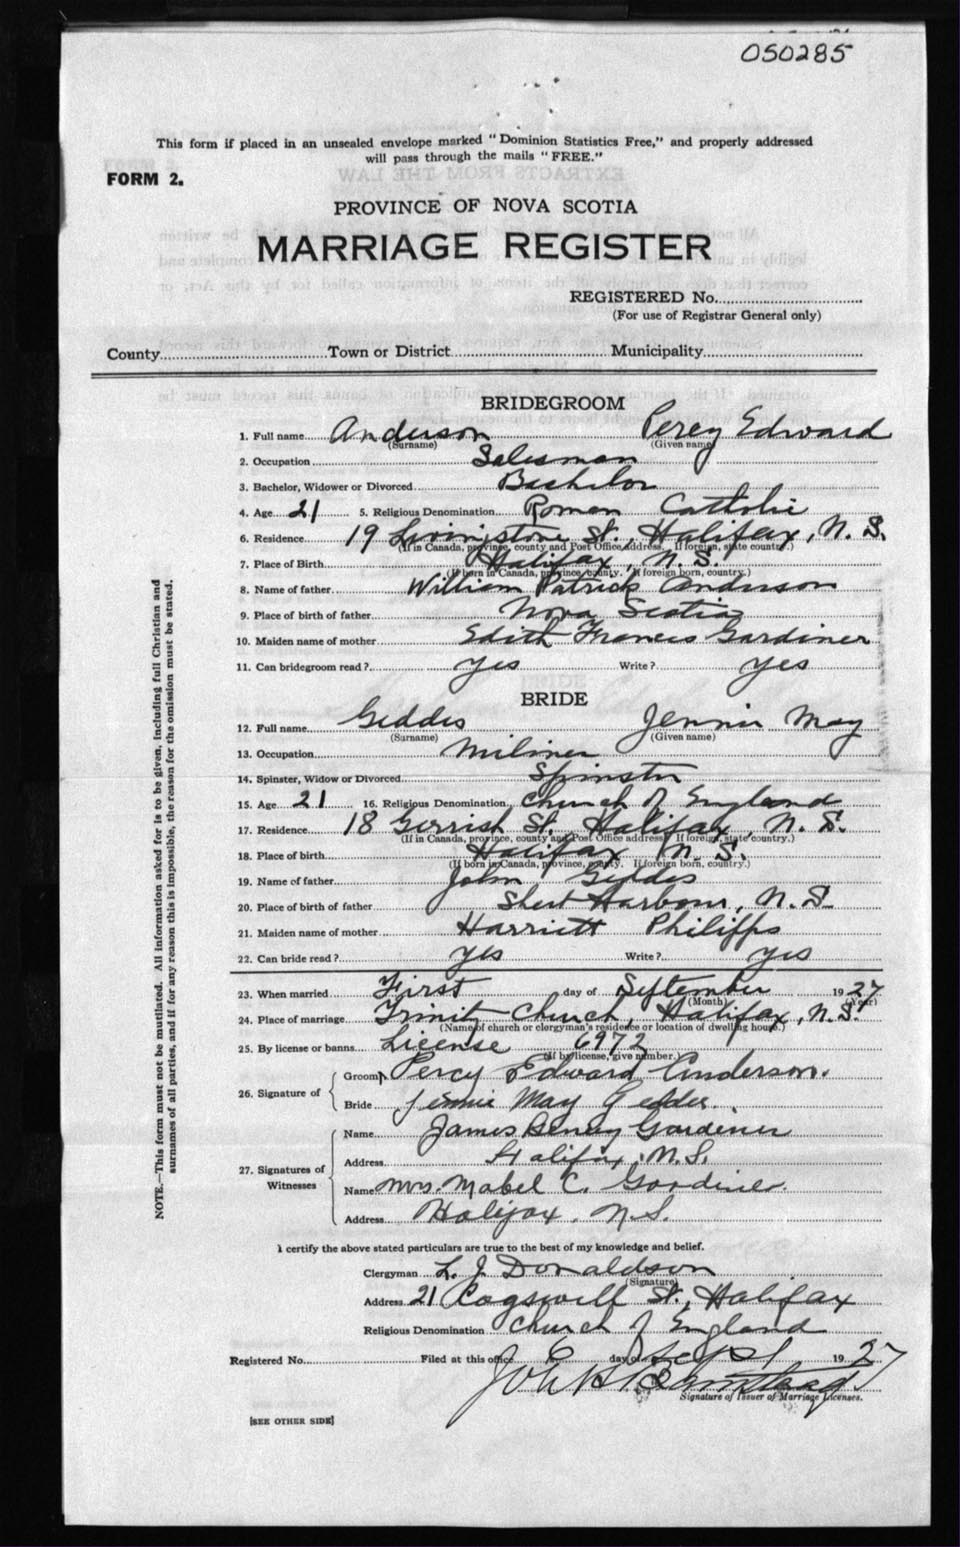 050285
This form if placed in an unsealed envelope marked "Dominion Statistics Free," and properly addressed
will pass through the mails "FREE."
FORM 2.
PROVINCE OF NOVA SCOTIA
MARRIAGE REGISTER
REGISTERED No.
(For use of Registrar General only)
County Town or District Municipality
BRIDEGROOM
1. Full name Anderson Percy Edward
(Surname) (Given name)
2. Occupation Salesman
3. Bachelor, Widower or Divorced Bachelor
4. Age 21 5. Religious Denomination Roman Catholic
6. Residence 19 Livingstone St. Halifax, N. S.
(If in Canada, province, county and Post Office Address. If foreign, state country.)
7. Place of Birth Halifax, N. S.
(If born in Canada, province, county. If foreign born, country.)
8. Name of father William Patrick Anderson
9. Place of birth of father Nova Scotia
10. Maiden name of mother Edith Francis Gardiner
11. Can bridegroom read? yes Write? yes
BRIDE
12. Full name Geddes Jennie May
(Surname) (Given name)
13. Occupation Miliner
14. Spinster, Widow or Divorced Spinster
15. Age 21 16. Religious Denomination Church of England
17. Residence 18 Gerrish St. Halifax, N. S.
(If in Canada, province, county and Post Office address. If foreign, state country.)
18. Place of birth Halifax N. S.
(If born in Canada, province, county. If foreign born, country.)
19. Name of father John Geddes
20. Place of birth of father Sheet Harbour, N. S.
21. Maiden name of mother Harriett Philipps
22. Can bride read? yes Write? yes
23. When married First day of September 1927
(Month) (Year)
24. Place of marriage Trinity Church, Halifax, N.S.
(Name of church or clergyman's residence or location of dwelling house.)
25. By license or banns License 6972
(If by license, give number.)
26. Signature of
Groom Percy Edward Anderson.
Bride Jennie May Geddes.
27. Signatures of Witnesses
Name James Henry Gardiner
Address Halifax, N.S.
Name Mrs. Mabel C. Gardiner.
Address Halifax, N.S.
I certify the above stated particulars are true to the best of my knowledge and belief.
Clergyman L. J. Donaldson
(Signature)
Address 21 Cogswell St., Halifax
Religious Denomination Church of England
Registered No. Filed at this office 6 day of Sept 1927
Signature of Issuer of Marriage Licenses.
[SEE OTHER SIDE]
NOTE.—This form must not be mutilated. All information asked for is to be given, including full Christian and
surnames of all parties, and if for any reason this is impossible, the reason for the omission must be stated.